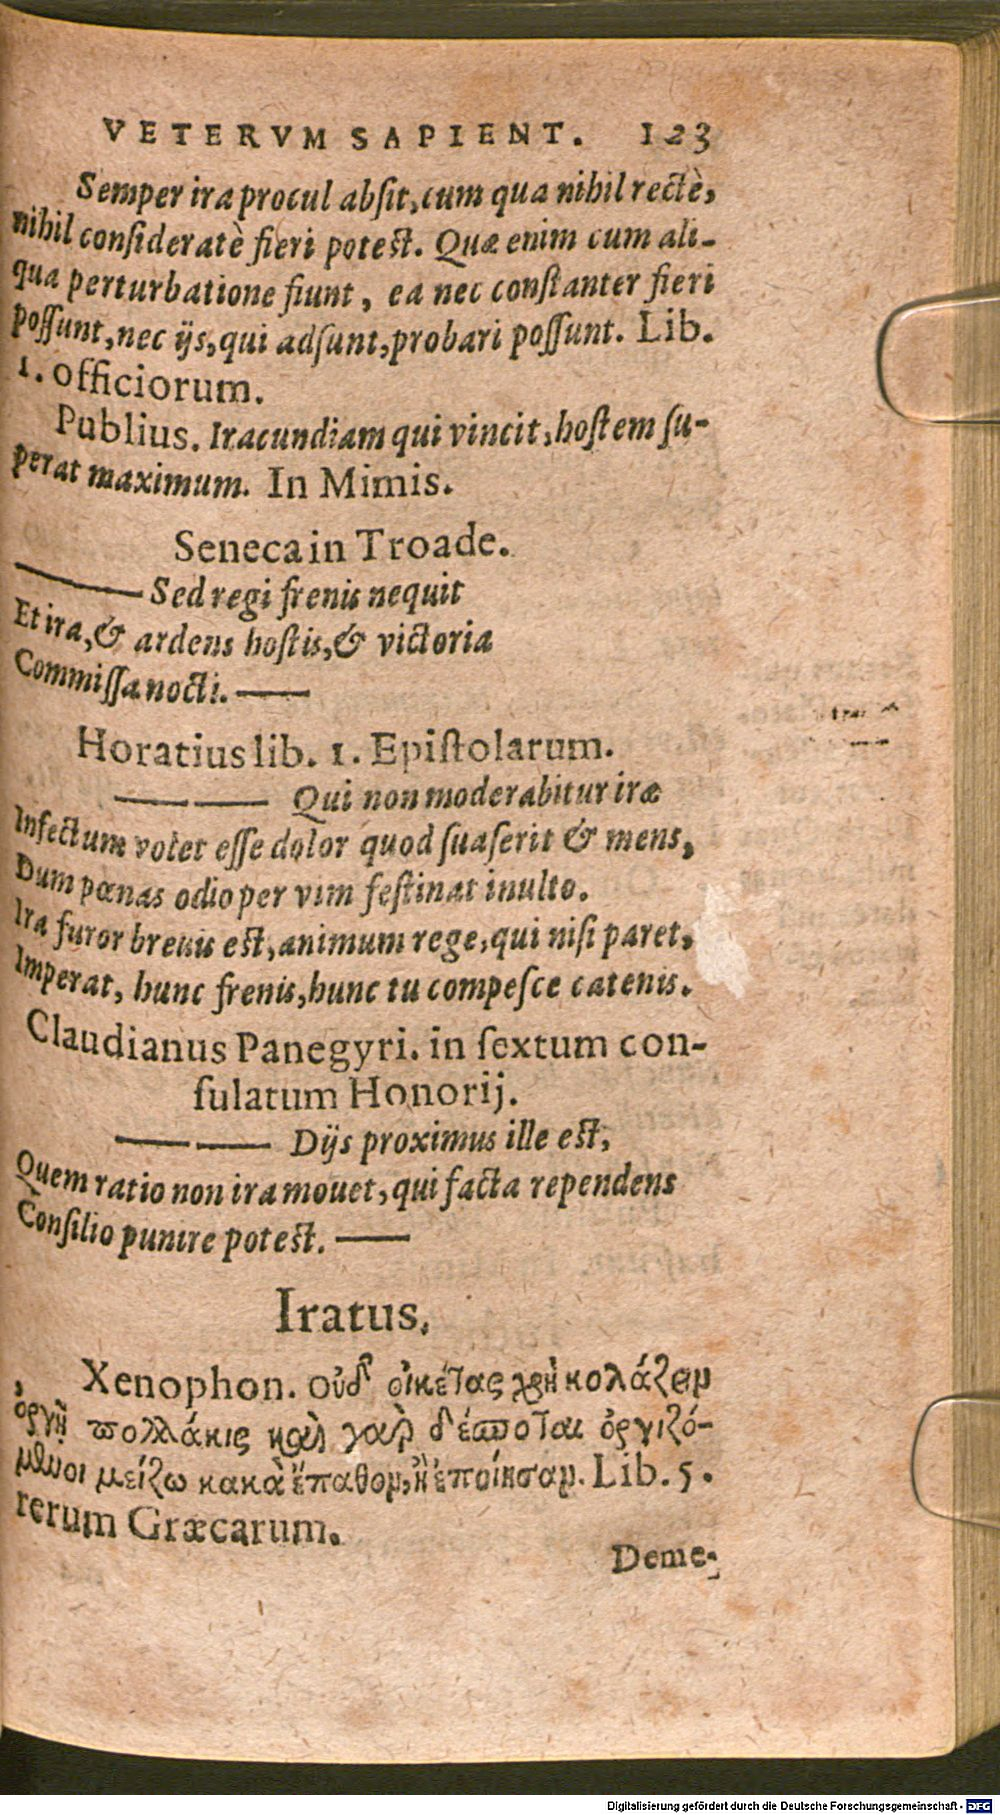 VETERVM SAPIENT. 123
Semper ira procul absit, cum qua nihil rectè,
nihil consideratè fieri potest. Quæ enim cum ali-
qua perturbatione fiunt, ea nec constanter fieri
possunt, nec ijs, qui adsunt, probari possunt. Lib.
1. officiorum.
Publius. Iracundiam qui vincit, hostem su-
perat maximum. In Mimis.
Seneca in Troade.
—— Sed regi frenis nequit
Et ira, & ardens hostis, & victoria
Commissa nocti. ——
Horatius lib. 1. Epistolarum.
—— —— Qui non moderabitur iræ
Infectum volet esse dolor quod suaserit & mens,
Dum pœnas odio per vim festinat inulto.
Ira furor breuis est, animum rege, qui nisi paret,
Imperat, hunc frenis, hunc tu compesce catenis.
Claudianus Panegyri. in sextum con-
sulatum Honorij.
—— —— Dijs proximus ille est,
Quem ratio non ira mouet, qui facta rependens
Consilio punire potest. ——
Iratus.
Xenophon. οὐδ' οἰκέτας χρὴ κολάζειν
ὀργῇ πολλάκις καὶ γὰρ δέσποται ὀργιζό-
μενοι μείζω κακὰ ἔπαθον, ἢ ἐποίησαν. Lib. 5.
rerum Græcarum.
Deme-
Digitalisierung gefördert durch die Deutsche Forschungsgemeinschaft - DFG